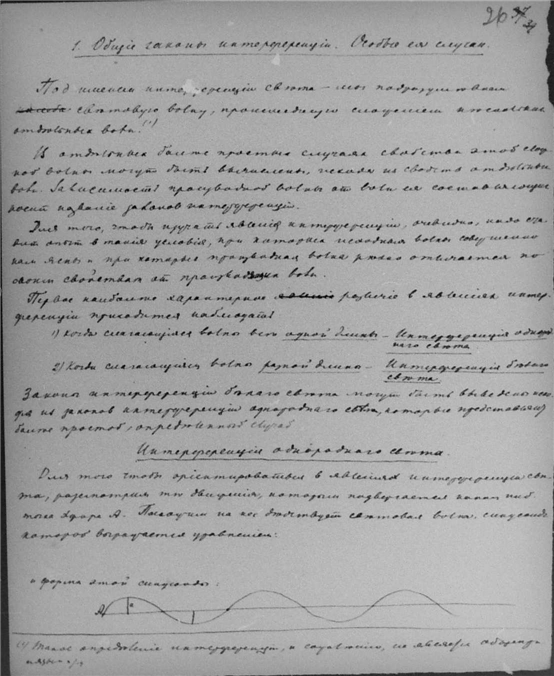 26 37
1. Общіе законы интерференціи. Особые ея случаи.
Подъ именемъ интерференціи свѣта мы подразумѣваемъ
свѣтовую волну, происходящую сложеніемъ нѣсколькихъ
отдѣльныхъ волнъ. (1)
Въ отдѣльныхъ болѣе простыхъ случаяхъ свойства этой слож-
ной волны могутъ быть вычислены, исходя изъ свойствъ отдѣльныхъ
волнъ. Зависимость производной волны отъ волнъ ея составляющихъ
носитъ названіе законовъ интерференціи.
Для того, чтобы изучать явленія интерференціи, очевидно, надо ста-
вить опытъ въ такія условія, при которыхъ исходныя волны совершенно
намъ ясны и при которыхъ производная волна рѣзко отличается по
своимъ свойствамъ отъ волнъ.
Первое наиболѣе характерное различіе въ явленіяхъ интер-
ференціи приходится наблюдать
1) Когда слагающіяся волны всѣ одной длины – Интерференція однород-
наго свѣта
2) Когда слагающіяся волны разной длины – Интерференція бѣлаго
свѣта.
Законы интерференціи бѣлаго свѣта могутъ быть выведены исхо-
дя изъ законовъ интерференціи однороднаго свѣта, которые представляютъ
болѣе простой, опредѣленный случай
Интерференція однороднаго свѣта.
Для того чтобы оріентироваться въ явленіяхъ интерференціи свѣ-
та, разсмотримъ тѣ движенія, которымъ подвергается какая нибудь
точка эфира А. Положимъ на нее дѣйствуетъ свѣтовая волна, синусоида
которой выражается уравненіемъ:
и форма этой синусоиды:
А
(1) Такое опредѣленіе интерференціи, къ сожалѣнію, не является